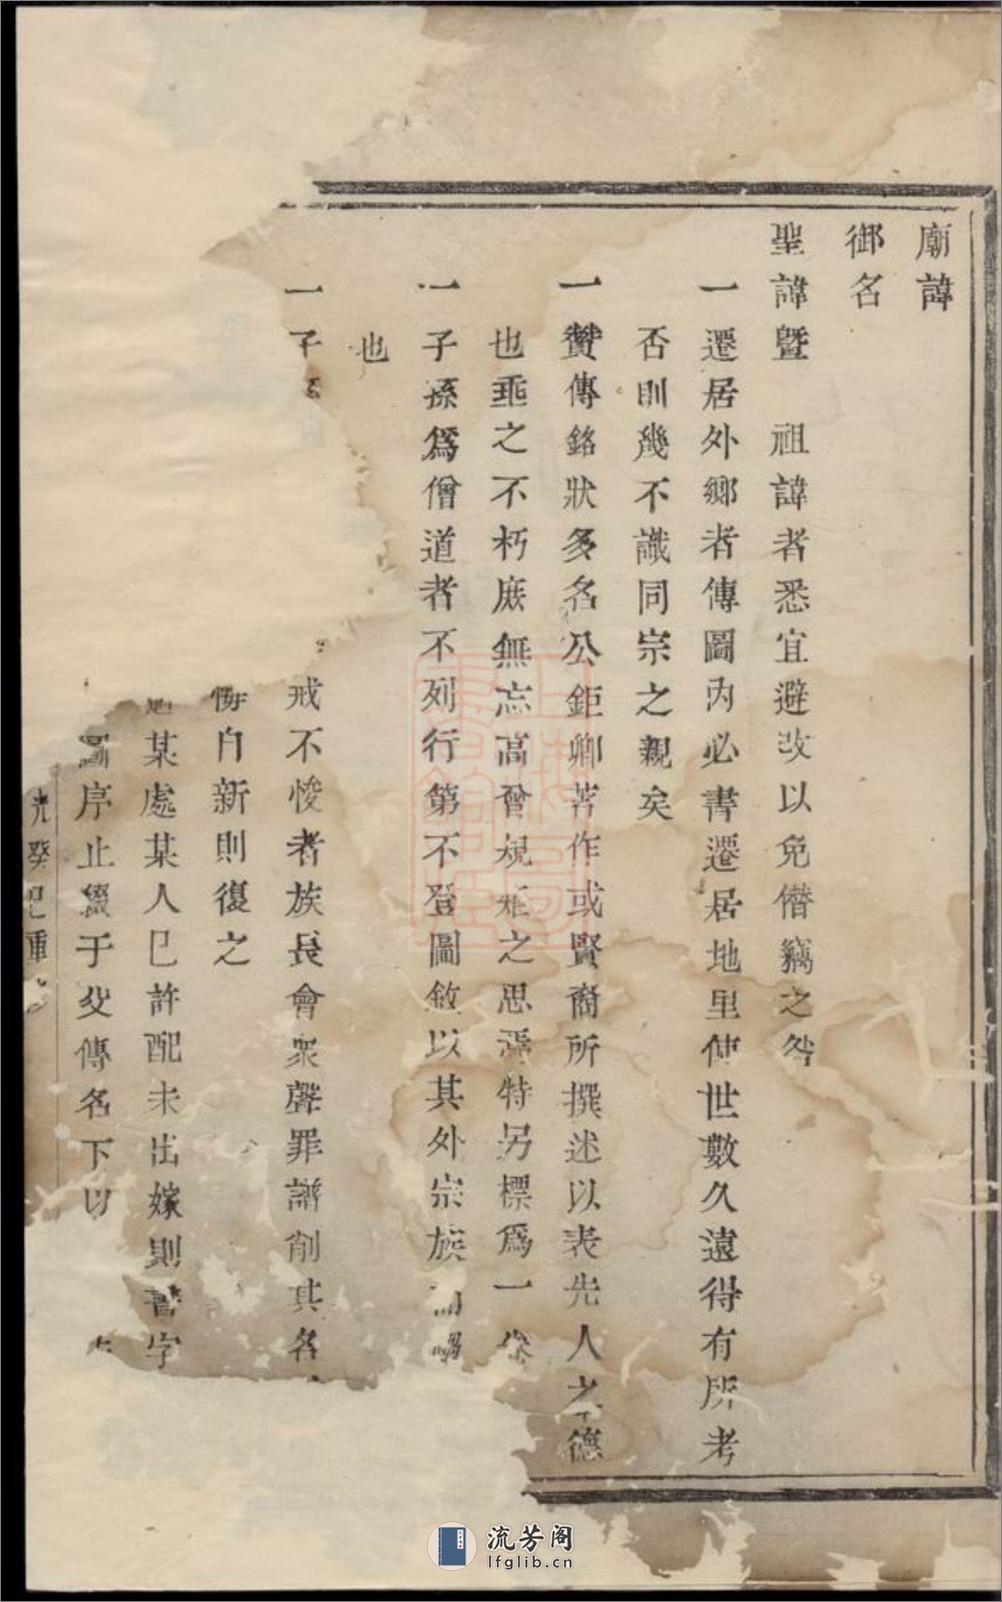 廟諱
御名
聖諱暨　祖諱者悉宜避改以免僭竊之咎
一遷居外鄉者傳圖內必書遷居地里使世數久遠得有所考
否則幾不識同宗之親矣
一贊傳銘狀多名公鉅卿著作或賢裔所撰述以表先人之德
也垂之不朽庶無忘高曾規矩之思焉特另標爲一卷
一子孫爲僧道者不列行第不登圖敘以其外宗族
也
一子
戒不悛者族長會衆聲罪譜削其名
悔自新則復之
某處某人已許配未出嫁則書字
圖序止綴于父傳名下以
光癸巳重
流芳阁
lfglib.cn